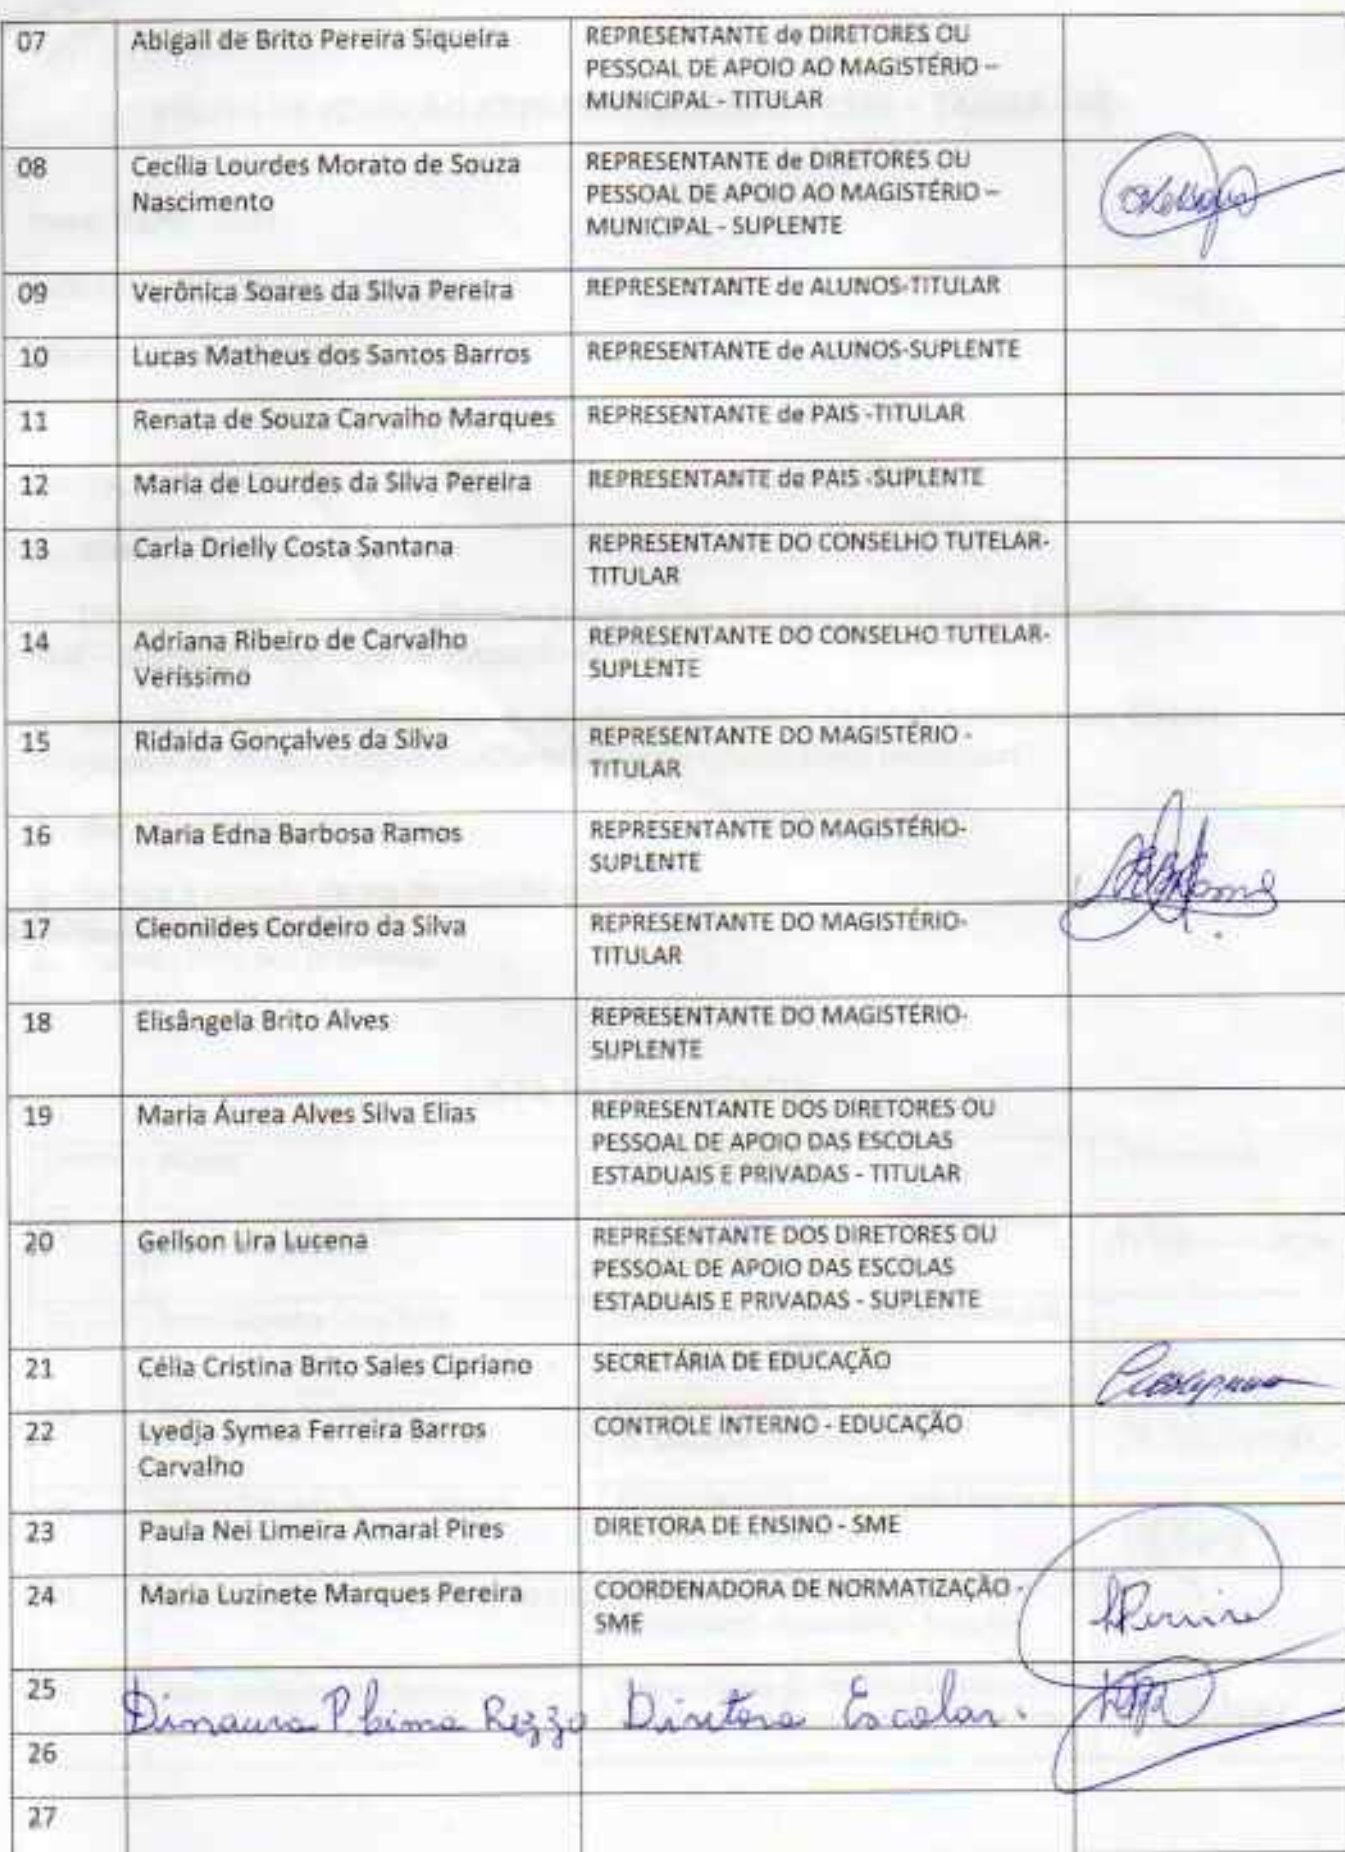 07 Abigail de Brito Pereira Siqueira REPRESENTANTE de DIRETORES OU
PESSOAL DE APOIO AO MAGISTÉRIO –
MUNICIPAL - TITULAR
08 Cecília Lourdes Morato de Souza REPRESENTANTE de DIRETORES OU
Nascimento PESSOAL DE APOIO AO MAGISTÉRIO –
MUNICIPAL - SUPLENTE
09 Verônica Soares da Silva Pereira REPRESENTANTE de ALUNOS-TITULAR
10 Lucas Matheus dos Santos Barros REPRESENTANTE de ALUNOS-SUPLENTE
11 Renata de Souza Carvalho Marques REPRESENTANTE de PAIS -TITULAR
12 Maria de Lourdes da Silva Pereira REPRESENTANTE de PAIS -SUPLENTE
13 Carla Drielly Costa Santana REPRESENTANTE DO CONSELHO TUTELAR-
TITULAR
14 Adriana Ribeiro de Carvalho REPRESENTANTE DO CONSELHO TUTELAR-
Verissimo SUPLENTE
15 Ridalda Gonçalves da Silva REPRESENTANTE DO MAGISTÉRIO -
TITULAR
16 Maria Edna Barbosa Ramos REPRESENTANTE DO MAGISTÉRIO-
SUPLENTE
17 Cleonildes Cordeiro da Silva REPRESENTANTE DO MAGISTÉRIO-
TITULAR
18 Elisângela Brito Alves REPRESENTANTE DO MAGISTÉRIO-
SUPLENTE
19 Maria Áurea Alves Silva Elias REPRESENTANTE DOS DIRETORES OU
PESSOAL DE APOIO DAS ESCOLAS
ESTADUAIS E PRIVADAS - TITULAR
20 Geilson Lira Lucena REPRESENTANTE DOS DIRETORES OU
PESSOAL DE APOIO DAS ESCOLAS
ESTADUAIS E PRIVADAS - SUPLENTE
21 Célia Cristina Brito Sales Cipriano SECRETÁRIA DE EDUCAÇÃO
22 Lyedja Symea Ferreira Barros CONTROLE INTERNO - EDUCAÇÃO
Carvalho
23 Paula Nei Limeira Amaral Pires DIRETORA DE ENSINO - SME
24 Maria Luzinete Marques Pereira COORDENADORA DE NORMATIZAÇÃO -
SME
25 Dinaura P Lima Rezzo Diretora Escolar.
26
27